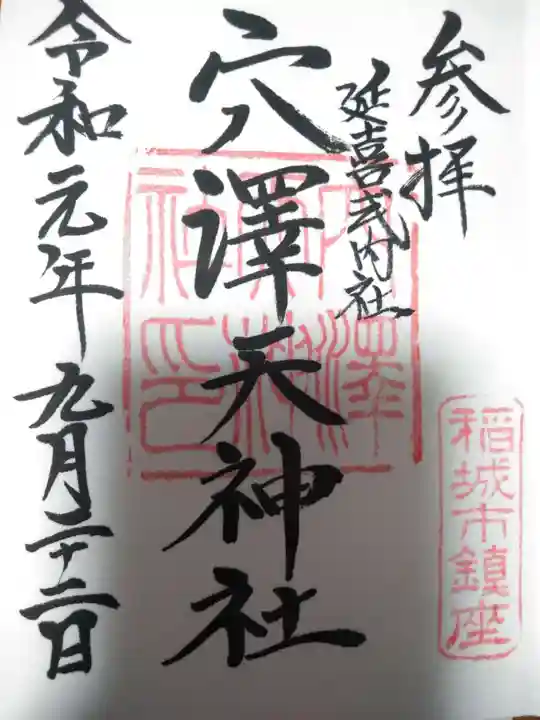 参拝
延喜式内社
穴澤天神社
令和元年九月二十二日
穴澤天神社印
稲城市鎮座